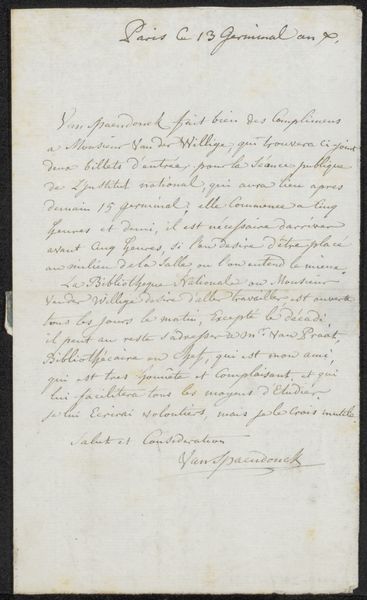 Paris le 13 Germinal an X.
Van Spaendonck fait bien des Complimens
a Monsieur Van der Willige, qui trouvera ci joint
deux billets d'entrée pour la Séance publique
de L'institut national, qui aura lieu apres
demain 15 germinal; elle Commence a Cinq
heures et demi, il est nécessaire d'arriver
avant Cinq heures, si l'on desire d'être placé
au milieu de la Salle ou l'on entend le mieux.
La Bibliotheque Nationale ou Monsieur
Van der Willige desire d'aller travailler est ouverte
tous les jours le matin, Excepté le décadi,
il peut au reste s'adresser a Mr. Van Praat,
Bibliothécaire en Chef, qui est mon ami,
qui est tres honnête et complaisant, et qui
lui facilitera tous les moyens d'Etudier
je lui Ecrirai volontiers, mais je le Crois inutile
Salut et Consideration
Van Spaendonck